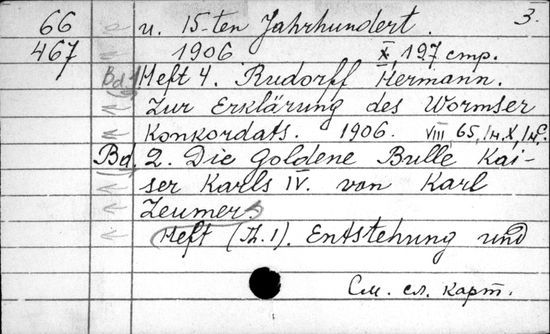 66 u. 15-ten Jahrhundert. 3.
467 1906 X, 197 стр.
Bd 1 Heft 4. Rudorff Hermann.
Zur Erklärung des Wormser
Konkordats. 1906. VIII, 65,
Bd. 2. Die Goldene Bulle Kai-
ser Karls IV. von Karl
Zeumer.
Heft (Th. 1). Entstehung und
См. сл. карт.